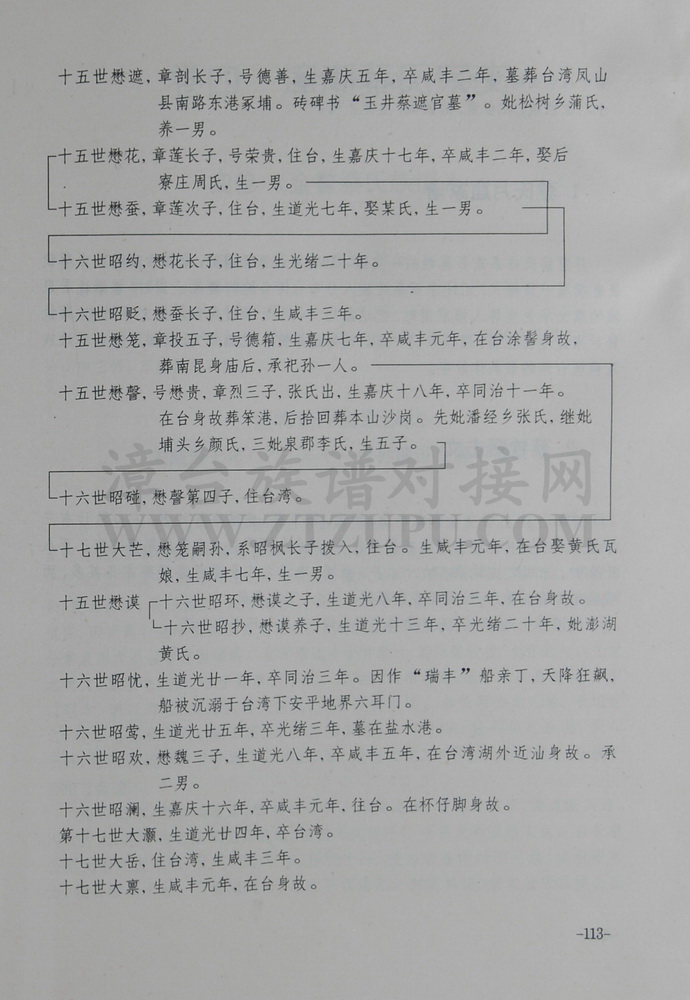 十五世懋遮,章剖长子,号德善,生嘉庆五年,卒咸丰二年,墓葬台湾凤山
县南路东港冢埔。砖碑书“玉井蔡遮官墓”。妣松树乡蒲氏,
养一男。
十五世懋花,章莲长子,号荣贵,住台,生嘉庆十七年,卒咸丰二年,娶后
寮庄周氏,生一男。
十五世懋蚕,章莲次子,住台,生道光七年,娶某氏,生一男。
十六世昭约,懋花长子,住台,生光绪二十年。
十六世昭贬,懋蚕长子,住台,生咸丰三年。
十五世懋笼,章投五子,号德箱,生嘉庆七年,卒咸丰元年,在台涂髻身故,
葬南昆身庙后,承祀孙一人。
十五世懋磬,号懋贵,章烈三子,张氏出,生嘉庆十八年,卒同治十一年。
在台身故葬笨港,后拾回葬本山沙岗。先妣潘经乡张氏,继妣
埔头乡颜氏,三妣泉郡李氏,生五子。
十六世昭碰,懋磬第四子,住台湾。
漳台族谱对接网
WWW.ZTZUPU.COM
十七世大芒,懋笼嗣孙,系昭枫长子拨入,往台。生咸丰元年,在台娶黄氏瓦
娘,生咸丰七年,生一男。
十五世懋谟 十六世昭环,懋谟之子,生道光八年,卒同治三年,在台身故。
十六世昭抄,懋谟养子,生道光十三年,卒光绪二十年,妣澎湖
黄氏。
十六世昭忧,生道光廿一年,卒同治三年。因作“瑞丰”船亲丁,天降狂飙,
船被沉溺于台湾下安平地界六耳门。
十六世昭莺,生道光廿五年,卒光绪三年,墓在盐水港。
十六世昭欢,懋魏三子,生道光八年,卒咸丰五年,在台湾湖外近汕身故。承
二男。
十六世昭澜,生嘉庆十六年,卒咸丰元年,往台。在杯仔脚身故。
第十七世大灏,生道光廿四年,卒台湾。
十七世大岳,住台湾,生咸丰三年。
十七世大禀,生咸丰元年,在台身故。
-113-